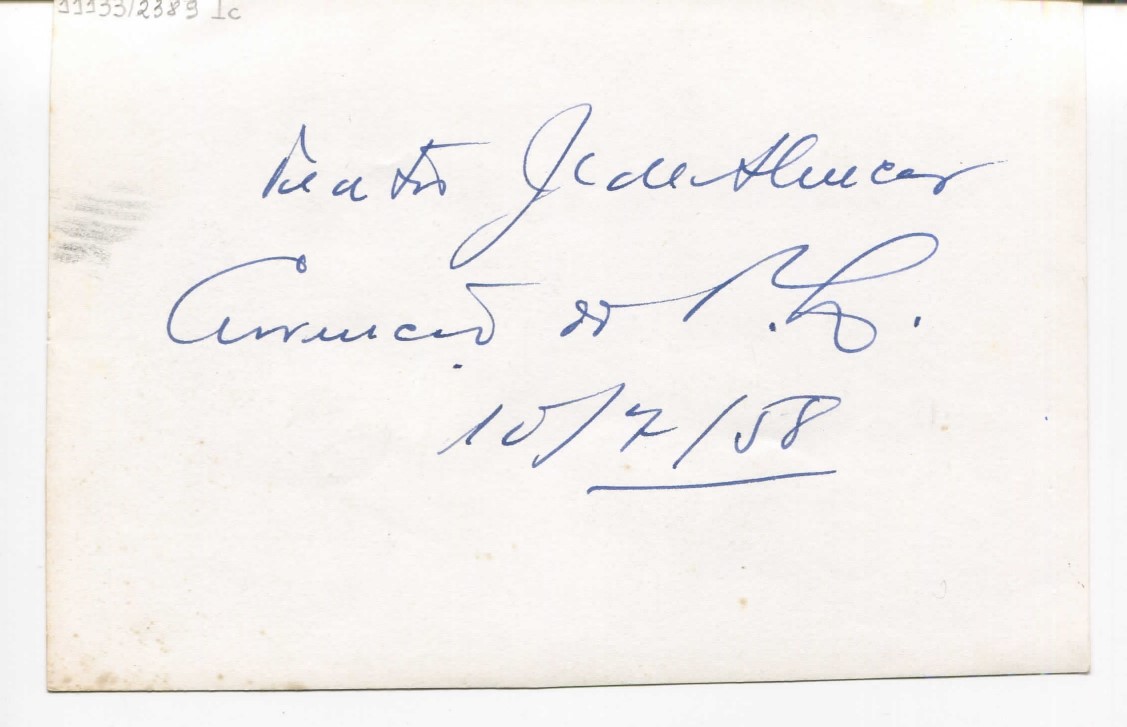 11133/2389 Ic
Teatro José de Alencar
Convenção do P.
10/7/58